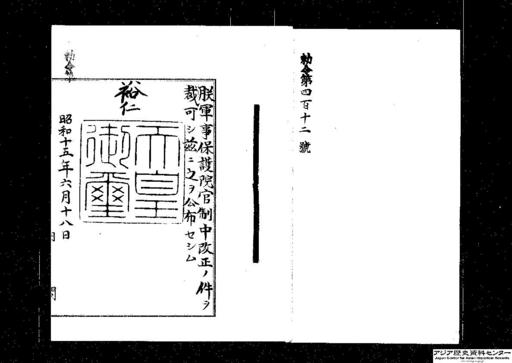 勅令第四百十二號
朕軍事保護院官制中改正ノ件ヲ
裁可シ茲ニ之ヲ公布セシム
裕仁
天皇
御璽
昭和十五年六月十八日
アジア歴史資料センター
Japan Center for Asian Historical Records